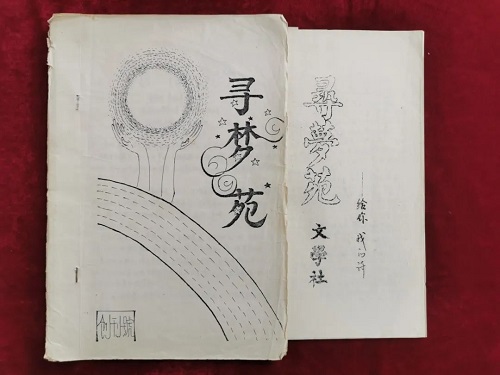 寻梦苑
创刊号
尋夢苑
文學社
——给你 我的诗